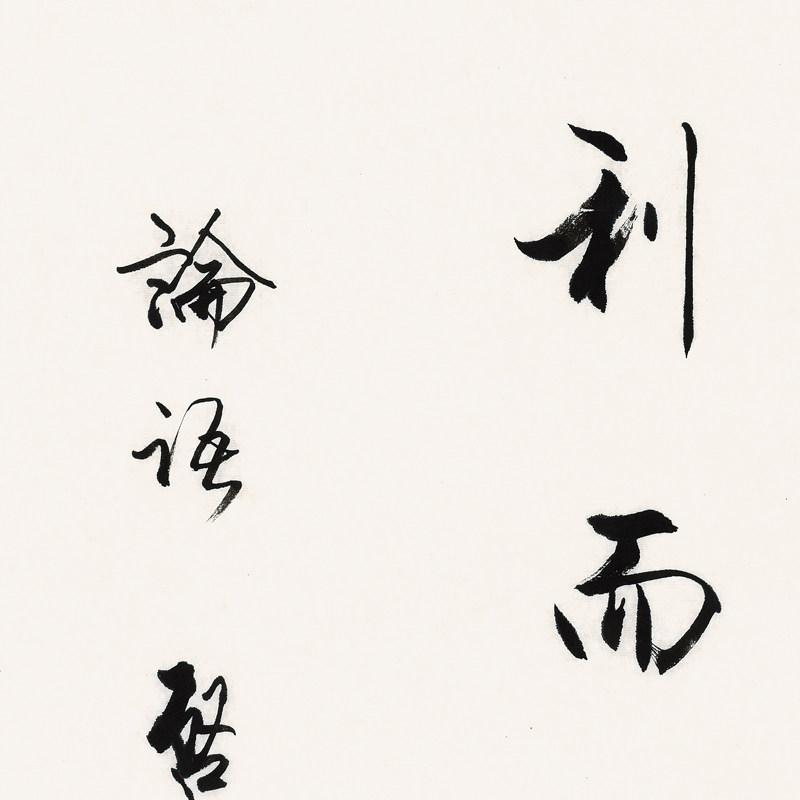 利而
論語啓